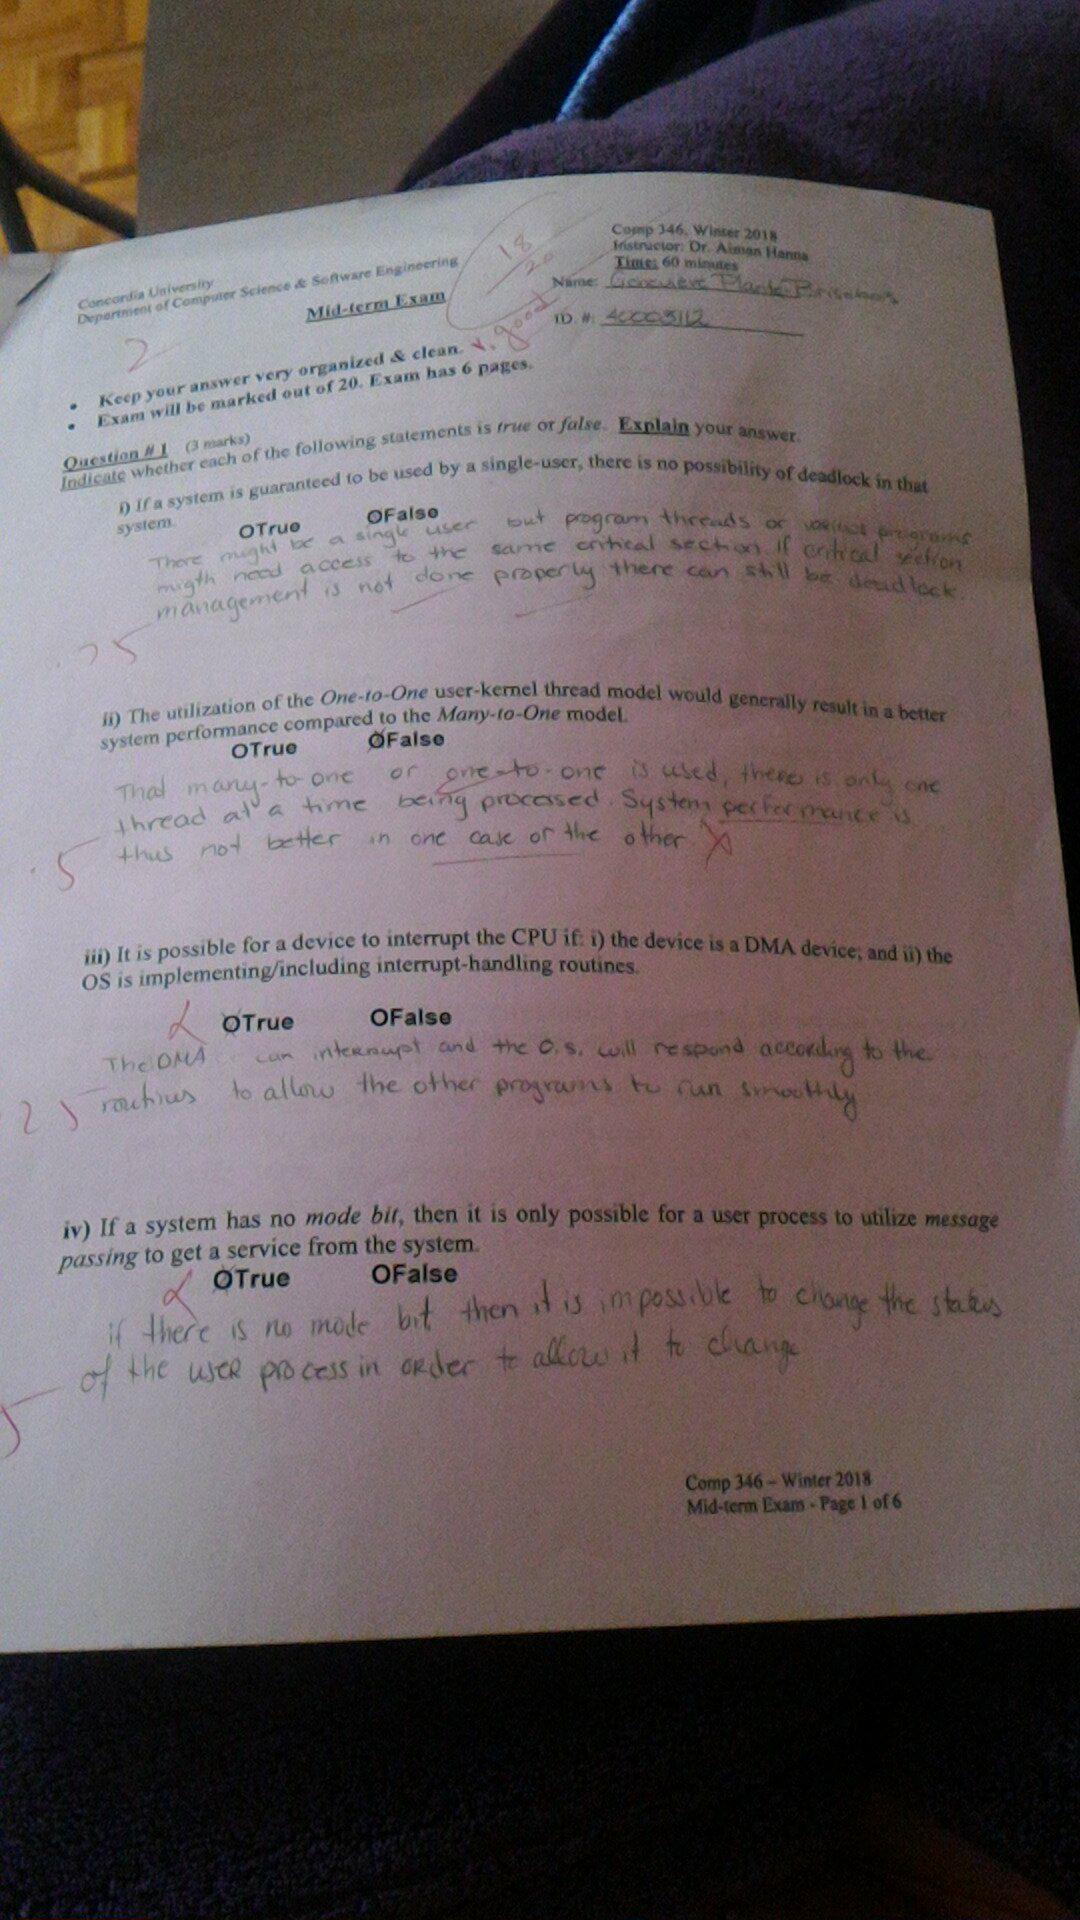 Concordia University
Department of Computer Science & Software Engineering
Comp 346, Winter 2018
Instructor: Dr. Aiman Hanna
Time: 60 minutes
Mid-term Exam
18/20
v. good
Name: Genevieve Plante
ID. #: 40003112
2
• Keep your answer very organized & clean.
• Exam will be marked out of 20. Exam has 6 pages.
Question # 1 (3 marks)
Indicate whether each of the following statements is true or false. Explain your answer.
i) If a system is guaranteed to be used by a single-user, there is no possibility of deadlock in that
system.
OTrue OFalse
There might be a single user but program threads or various programs
migth need access to the same critical section. If critical section
management is not done properly there can still be deadlock.
.75
ii) The utilization of the One-to-One user-kernel thread model would generally result in a better
system performance compared to the Many-to-One model.
OTrue OFalse
That many-to-one or one-to-one is used, there is only one
thread at a time being processed. System performance is
thus not better in one case or the other
.5
iii) It is possible for a device to interrupt the CPU if: i) the device is a DMA device; and ii) the
OS is implementing/including interrupt-handling routines.
OTrue OFalse
The DMA can interrupt and the O.S. will respond according to the
routines to allow the other programs to run smoothly
25
iv) If a system has no mode bit, then it is only possible for a user process to utilize message
passing to get a service from the system.
OTrue OFalse
if there is no mode bit then it is impossible to change the status
of the user process in order to allow it to change
5
Comp 346 – Winter 2018
Mid-term Exam - Page 1 of 6